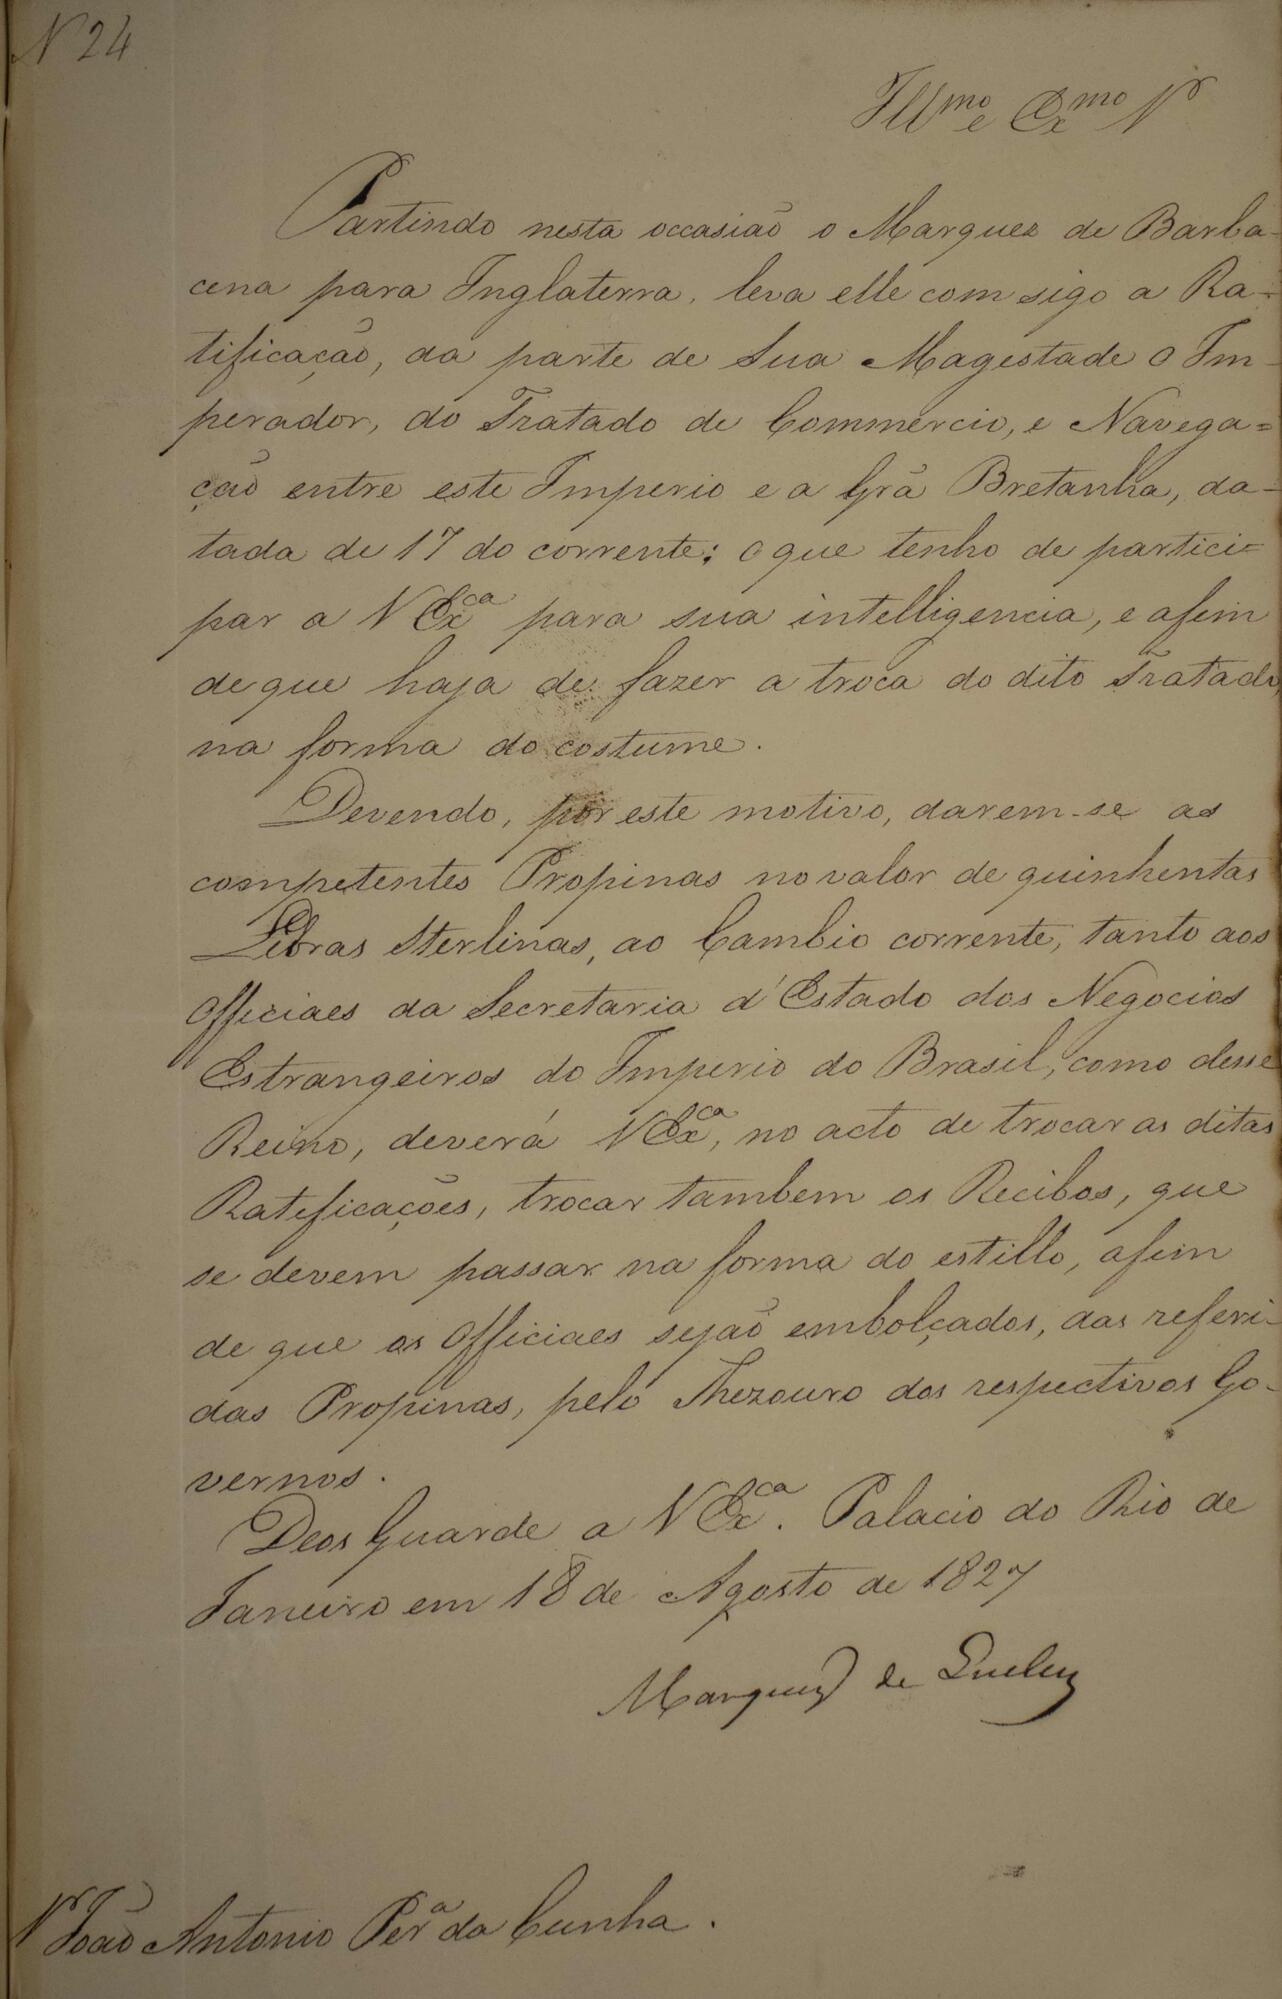 N 24
Illmo e Exmo Sr
Partindo nesta occasião o Marquez de Barba-
cena para Inglaterra, leva elle com sigo a Ra-
tificação, da parte de Sua Magestade o Im-
perador, do Tratado de Commercio, e Navega=
ção entre este Imperio e a Grã Bretanha, da-
tada de 17 do corrente; o que tenho de partici=
par a V Exca para sua intelligencia, e afim
de que haja de fazer a troca do dito Tratado,
na forma do costume.
Devendo, por este motivo, darem-se as
competentes Propinas no valor de quinhentas
Libras Sterlinas, ao Cambio corrente, tanto aos
Officiaes da Secretaria d'Estado dos Negocios
Estrangeiros do Imperio do Brasil, como desse
Reino, deverá V Exca, no acto de trocar as ditas
Ratificações, trocar tambem os Recibos, que
se devem passar na forma do estillo, afim
de que os Officiaes sejaõ embolçados, das referi-
das Propinas, pelo Thezouro dos respectivos Go-
vernos.
Deos Guarde a V Exca. Palacio do Rio de
Janeiro em 18 de Agosto de 1827
Marquez de Queluz
Sr João Antonio Pera da Cunha.